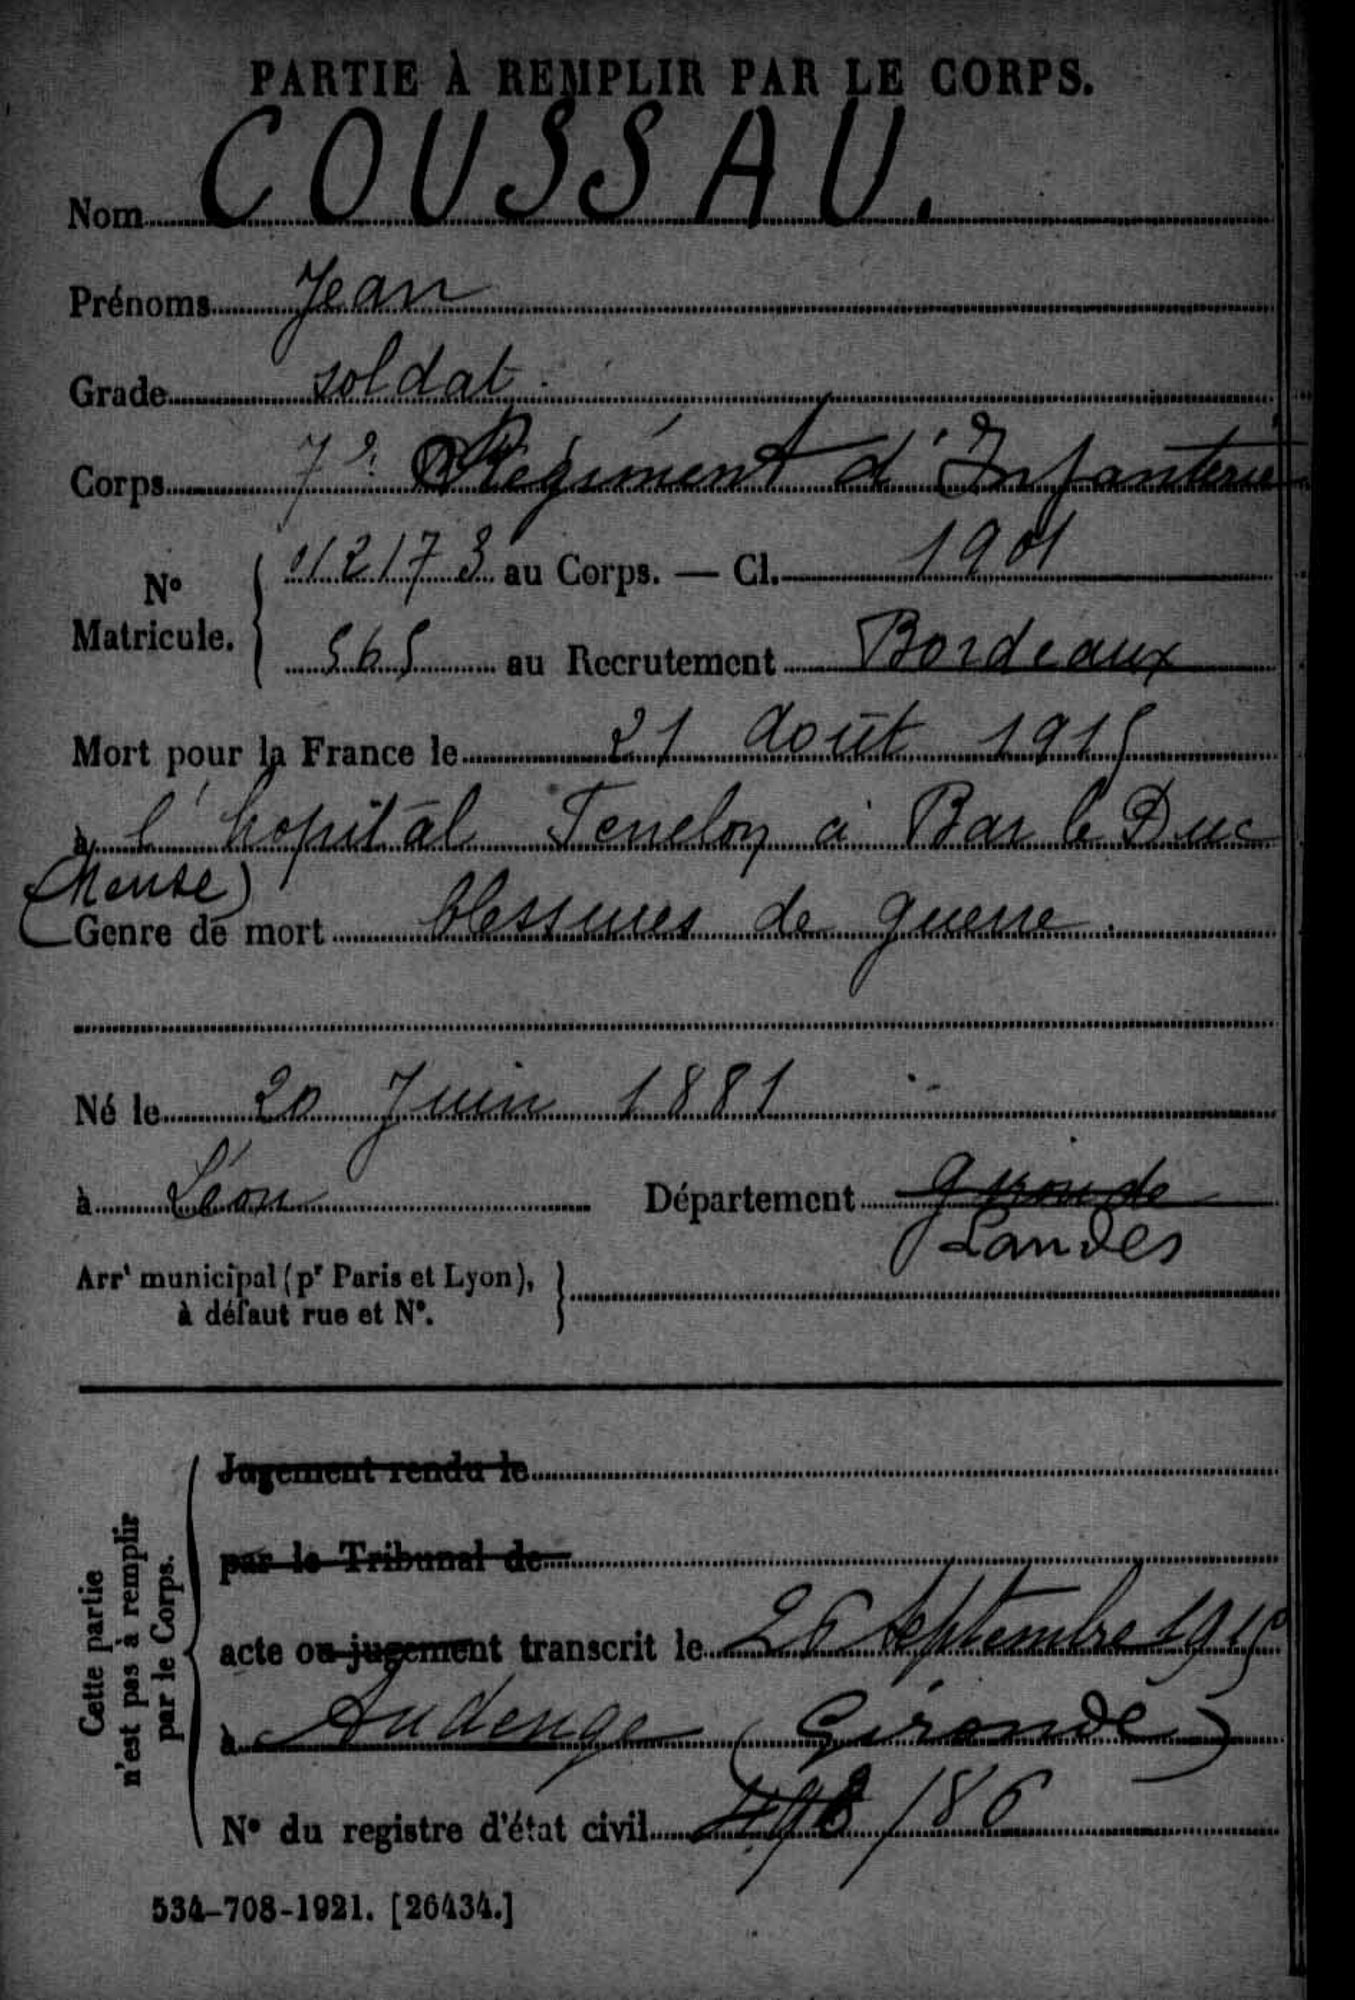 PARTIE À REMPLIR PAR LE CORPS.
Nom COUSSAU.
Prénoms Jean
Grade soldat.
Corps 7e Régiment d'Infanterie
No Matricule. 012173 au Corps. — Cl. 1901
565 au Recrutement Bordeaux
Mort pour la France le 21 Août 1915
à l'hopital Fenelon à Bar le Duc
(Meuse)
Genre de mort blessures de guerre.
Né le 20 Juin 1881
à Léon Département Gironde
Landes
Arrt municipal (pr Paris et Lyon),
à défaut rue et No.
Cette partie
n'est pas à remplir
par le Corps.
Jugement rendu le
par le Tribunal de
acte ou jugement transcrit le 26 Septembre 1915
à Audenge (Gironde)
No du registre d'état civil 186
534-708-1921. [26434.]